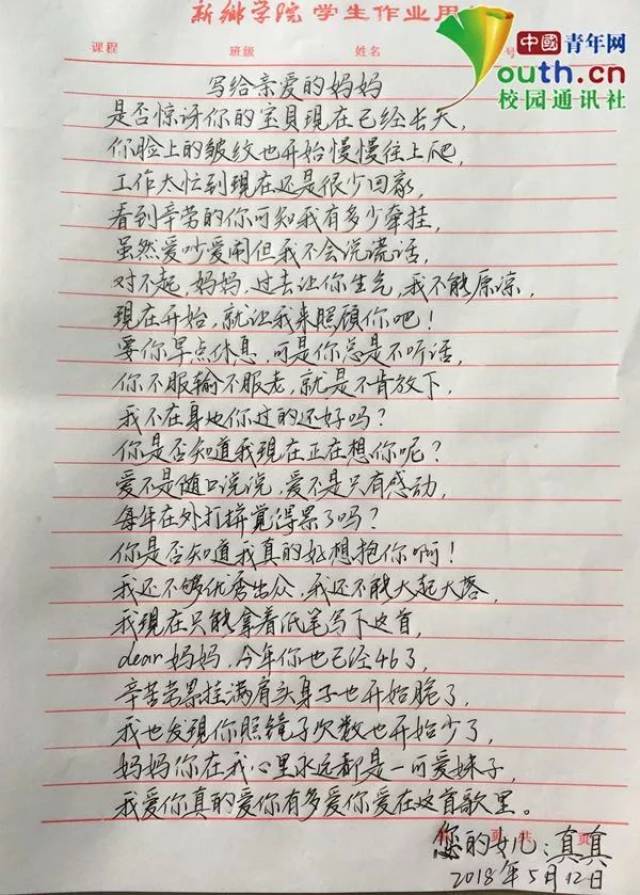 新乡学院学生作业用
中國青年网
Youth.cn
校园通讯社
课程 班级 姓名 号
写给亲爱的妈妈
是否惊讶你的宝贝現在已经长大，
你脸上的皱纹也开始慢慢往上爬，
工作太忙到現在还是很少回家，
看到辛劳的你可知我有多少牵挂，
虽然爱吵爱闹但我不会说谎话，
对不起，妈妈，过去让你生气，我不能原凉，
現在开始，就让我来照顧你吧！
要你早点休息，可是你总是不听话，
你不服输不服老，就是不肯放下，
我不在身地你过的还好吗？
你是否知道我現在正在想你呢？
爱不是随口说说，爱不是只有感动，
每年在外打拼覚得累了吗？
你是否知道我真的好想抱你啊！
我还不够优秀出众，我还不能大起大落，
我現在只能拿着纸笔写下这首，
dear妈妈，今年你也已经46了，
辛苦劳累挂满肩头身子也开始脆了，
我也发现你照镜子次数也开始少了，
妈妈你在我心里永远都是一可爱妹子，
我爱你真的爱你有多爱你爱在这首歌里。
页 共 页
您的女儿：真真
2018年5月12日